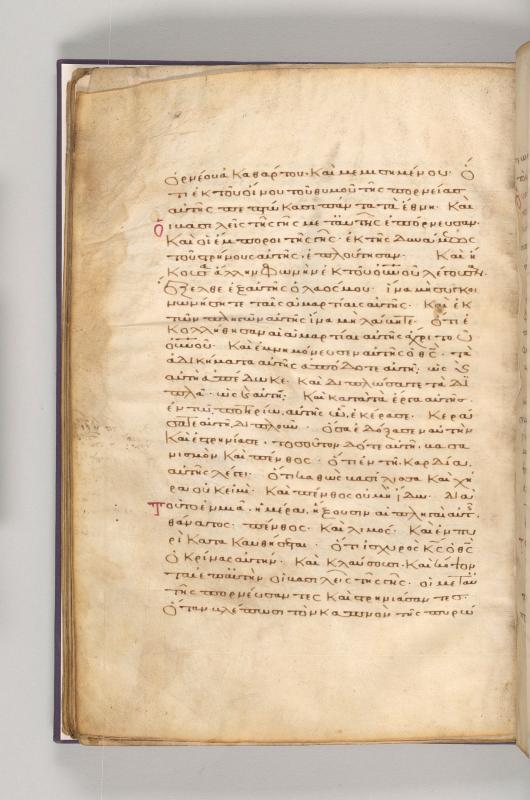 ὀρνέου ἀκαθάρτου· καὶ μεμισημένου· ὅ
τι ἐκ τοῦ οἴνου τοῦ θυμοῦ τῆς πορνείας
αὐτῆς πεπτώκασι πάντα τὰ ἔθνη· καὶ
οἱ βασιλεῖς τῆς γῆς μετ' αὐτῆς ἐπόρνευσαν·
καὶ οἱ ἔμποροι τῆς γῆς· ἐκ τῆς δυνάμεως
τοῦ στρήνους αὐτῆς, ἐπλούτησαν· καὶ ἤ
κουσα ἄλλην φωνὴν ἐκ τοῦ οὐνοῦ λέγουσαν·
ἔξελθε ἐξ αὐτῆς ὁ λαός μου· ἵνα μὴ συγκοι
νωνήσητε ταῖς ἁμαρτίαις αὐτῆς· καὶ ἐκ
τῶν πληγῶν αὐτῆς ἵνα μὴ λάβητε· ὅτι ἐ
κολλήθησαν αἱ ἁμαρτίαι αὐτῆς ἄχρι τοῦ
οὐνοῦ· καὶ ἐμνημόνευσεν αὐτῆς ὁ θς· τὰ
ἀδικήματα αὐτῆς ἀπόδοτε αὐτῇ· ὡς καὶ
αὐτὴ ἀπέδωκε· καὶ διπλώσατε τὰ δι
πλᾶ· ὡς καὶ αὐτή· καὶ κατὰ τὰ ἔργα αὐτῆς·
ἐν τῷ ποτηρίῳ αὐτῆς ᾧ ἐκέρασε· κερά
σατε αὐτῇ διπλοῦν· ὅσα ἐδόξασεν αὑτὴν
καὶ ἐστρηνίασε· τοσοῦτον δότε αὐτῇ βασα
νισμὸν καὶ πένθος· ὅτι ἐν τῇ καρδίᾳ
αὐτῆς λέγει· ὅτι καθὼς βασίλισσα καὶ χή
ρα οὐκ εἰμὶ· καὶ πένθος οὐ μὴ ἴδω· διὰ
τοῦτο ἐν μιᾷ ἡμέρᾳ ἥξουσιν αἱ πληγαὶ αὐτῆς
θάνατος· πένθος· καὶ λιμός· καὶ ἐν πυ
ρὶ κατακαυθήσεται· ὅτι ἰσχυρὸς κς ὁ θς
ὁ κρίνας αὐτήν· καὶ κλαύσουσι· καὶ κόψον
ται ἐπ' αὐτὴν οἱ βασιλεῖς τῆς γῆς· οἱ μετ' αὐ
τῆς πορνεύσαντες καὶ στρηνιάσαντες·
ὅταν βλέπωσι τὸν καπνὸν τῆς πυρώ